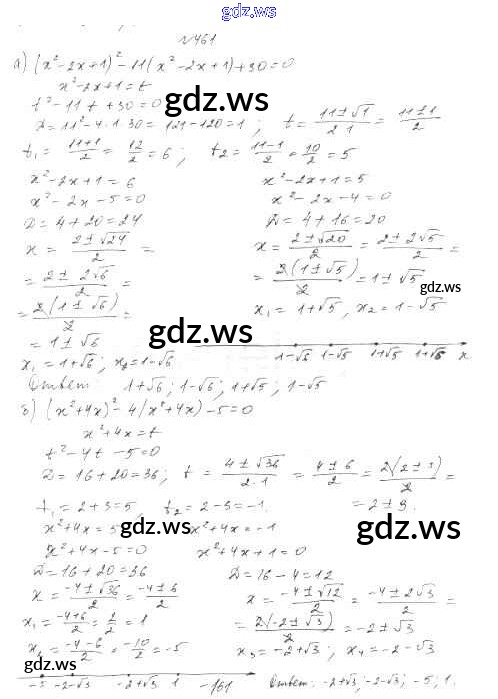 gdz.ws
№461
а) (x²-2x+1)²-11(x²-2x+1)+30=0
x²-2x+1=t
t²-11t+30=0
gdz.ws
D=11²-4·1·30=121-120=1; t=(11±√1)/(2·1)=(11±1)/2
t₁=(11+1)/2=12/2=6; t₂=(11-1)/2=10/2=5
x²-2x+1=6 x²-2x+1=5
x²-2x-5=0 x²-2x-4=0
D=4+20=24 D=4+16=20
x=(2±√24)/2= x=(2±√20)/2=(2±2√5)/2=
=(2±2√6)/2= =2(1±√5)/2=1±√5
=2(1±√6)/2= x₁=1+√5, x₂=1-√5
gdz.ws
=1±√6
x₁=1+√6; x₂=1-√6
1-√6 1-√5 1+√5 1+√6 x
Ответ: 1+√6; 1-√6; 1+√5; 1-√5
б) (x²+4x)²-4(x²+4x)-5=0
x²+4x=t
t²-4t-5=0
D=16+20=36; t=(4±√36)/(2·1)=(4±6)/2=2(2±3)/2=
=2±3.
t₁=2+3=5, t₂=2-3=-1.
x²+4x=5 x²+4x=-1
gdz.ws gdz.ws
x²+4x-5=0 x²+4x+1=0
D=16+20=36 D=16-4=12
x=(-4±√36)/2=(-4±6)/2 x=(-4±√12)/2=(-4±2√3)/2=
x₁=(-4+6)/2=2/2=1 =2(-2±√3)/2=-2±√3
x₂=(-4-6)/2=-10/2=-5 x₃=-2+√3, x₄=-2-√3
gdz.ws
-5 -2-√3 -2+√3 1 -161
Ответ: -2+√3; -2-√3; -5; 1.